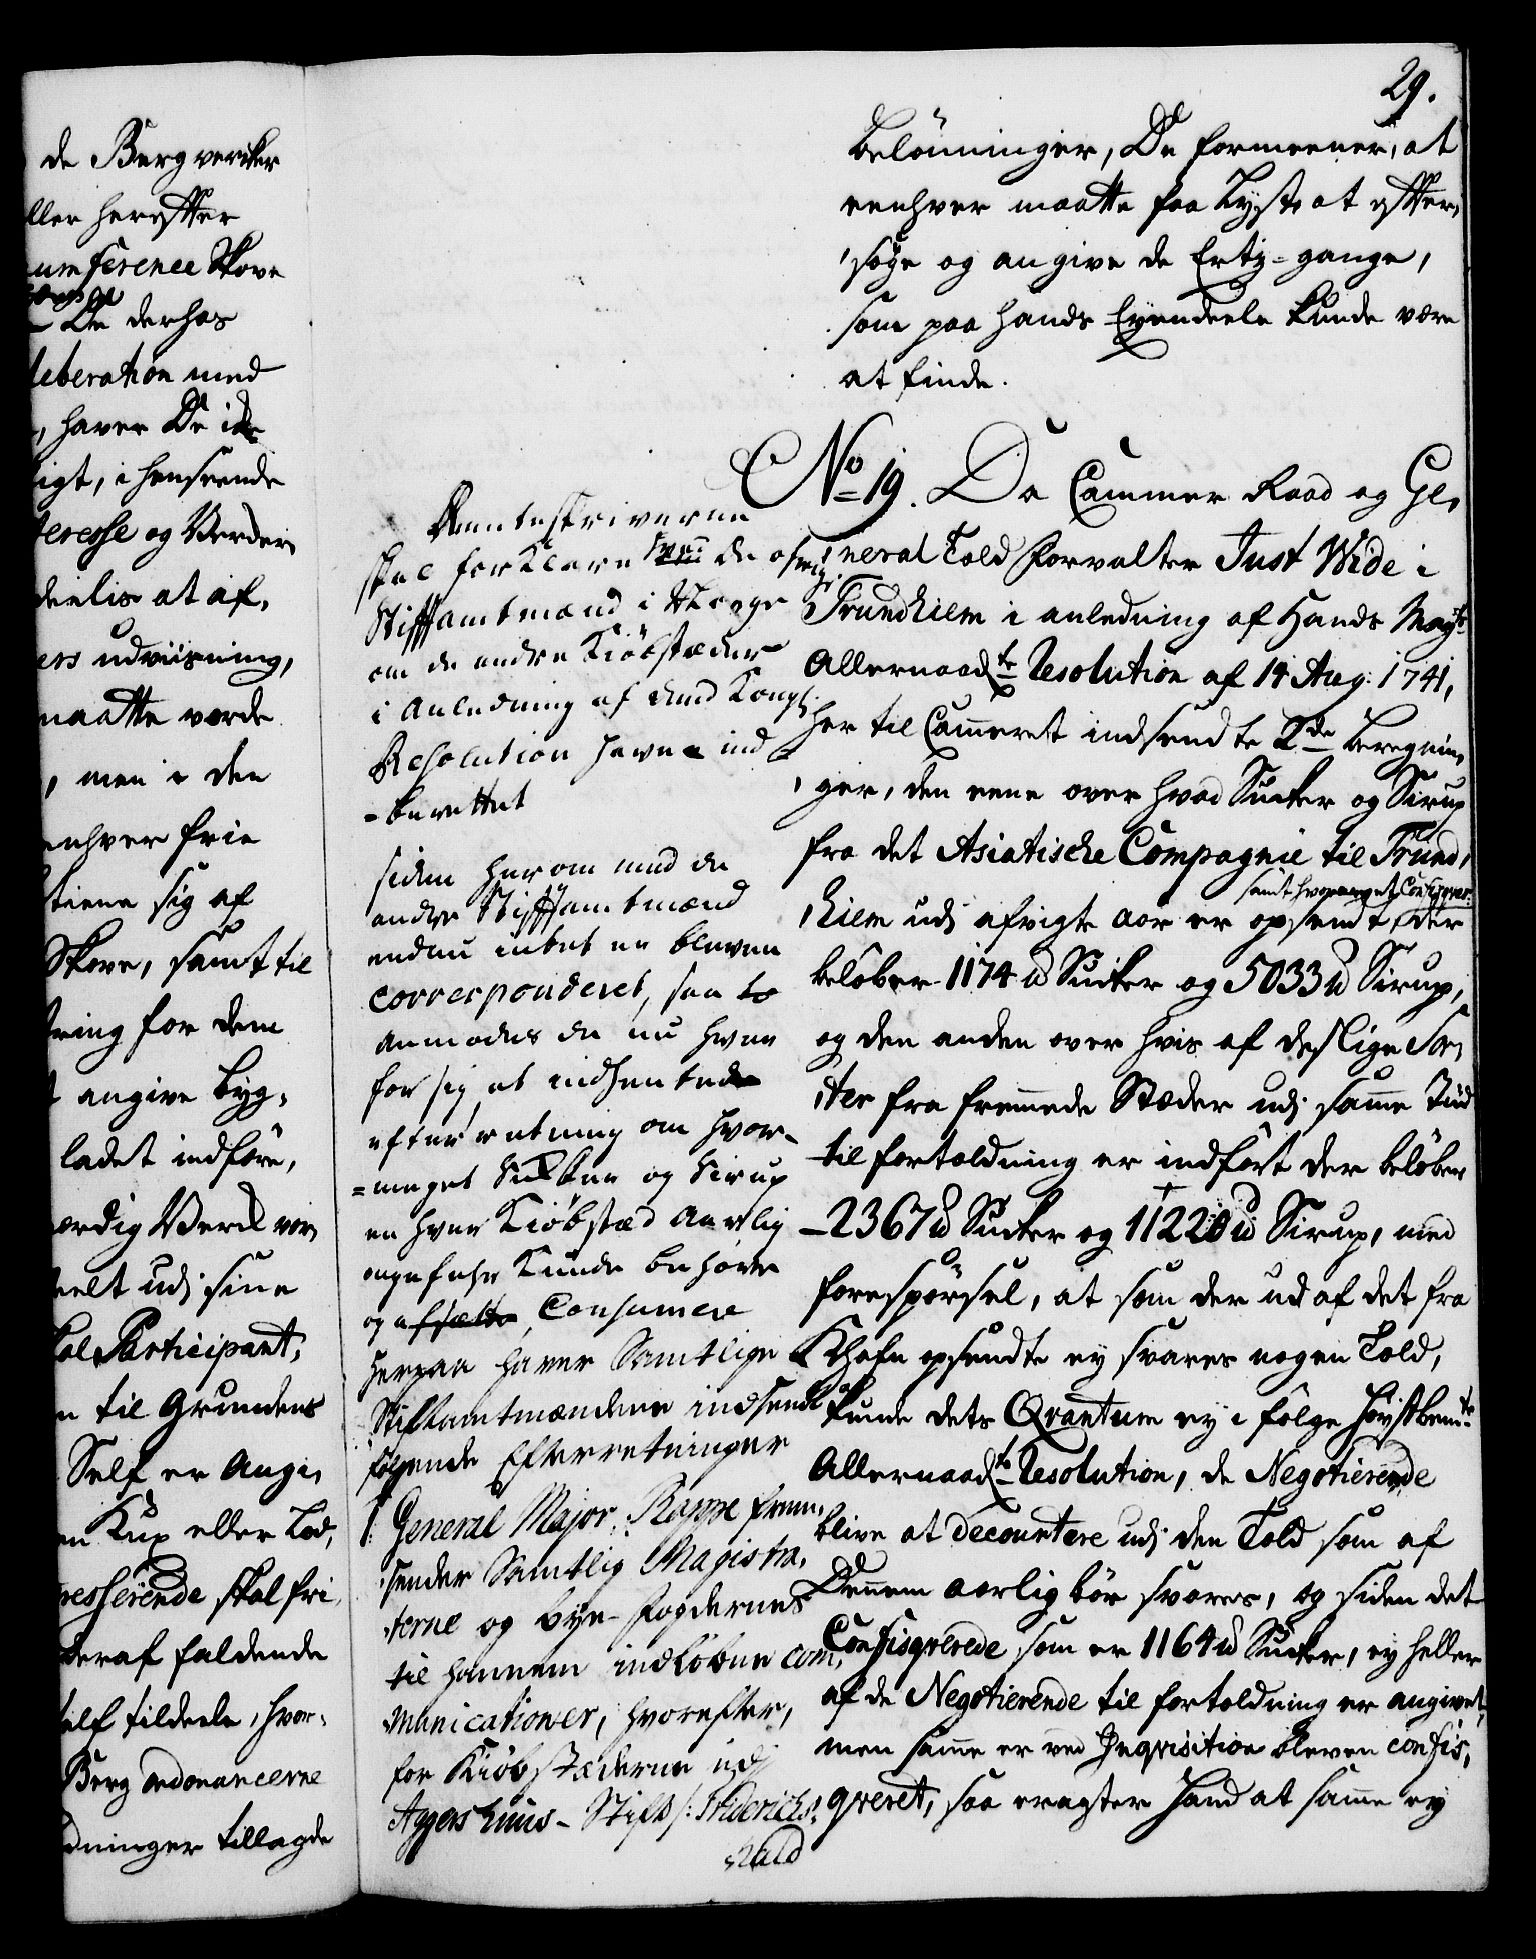 de Bergvercker
ller herefter
umference Skove
De derhos
leberation med
, haver De icke
igt, i henseende
teresse og Verdens
deelis at af,
ers udviisning,
maatte vorde
, men i den
enhver frie
tiene sig af
Skove, samt til
ring for dem
angive byg,
ladet indföre,
ærdig Værd vor,
eelt udj sine
Participant,
n til Grundens
Self er Angi,
en Kux eller Lod,
resserende skal fri
deraf faldende
self tildeele, hvor,
Berg ordonancerne
dninger tillagde
29.
belönninger, De formeener, at
eenhver maatte faa Lyst at efter,
söge og angive de Ertz-gange,
som paa hands Eyendeele kunde være
at finde.
No 19. Da Cammer Raad og Ge,
neral Told Forvalter Just Wide i
Trundhiem i anledning af Hands Mayts
Allernaadte Resolution af 14 Aug: 1741,
her til Cammeret indsendte 2de beregnin,
ger, den eene over hvad Sucker og Sirup
fra det Asiatische Compagnie til Trund,
samt hvor meget Confisqver:
hiem udj afvigte aar er opsendt, der
belöber 1174 lb Sucker og 5033 lb Sirup,
og den anden over hvis af deslige Sor,
ter fra fremmede Stæder udj samme Tiid
til fortoldning er indfört der belöber
2367 lb Sucker og 11220 lb Sirup, med
forespörsel, at som der ud af det fra
Khafn opsendte ey svares nogen Told,
kunde dets Qvantum ey i fölge höystbemte
Allernaadte Resolution, de Negotierende
blive at decourtere udj den Told som af
Dennem aarlig bör svares, og siden det
Confisqverede som er 1164 lb Sucker, ey heller
af de Negotierende til fortoldning er angivet,
men samme er ved Inqvisition bleven confis,
qveret, saa eragter Hand at samme ey
Renteskriverne
skal forklare hvad de öfrige
Stiftamtmænd i Norge
om de andre Kiöbstæder
i Anledning af dend Kongl:
Resolution haver ind
-berettet
siden herom med de
andre Stiftamtmænd
endnu intet er bleven
corresponderet, saa
anmodes de nu hver
for sig, at indhente
efterretning om hvor-
=meget Sukker og Sirup
en hver Kiöbstæd Aarlig
ongefehr kunde behöve
og afsætte, Consumere
Herpaa haver Samtlige
Stiftamtmændene indsendt
fölgende Efterretninger
1. General Major Rappe frem,
sender Samtlig Magistra,
terne og bye-fogdernes
til hannem indlöbne com,
municationer, hvorefter,
for Kiöbstæderne udj
Aggershuus-Stift /: Friderichs,
hald